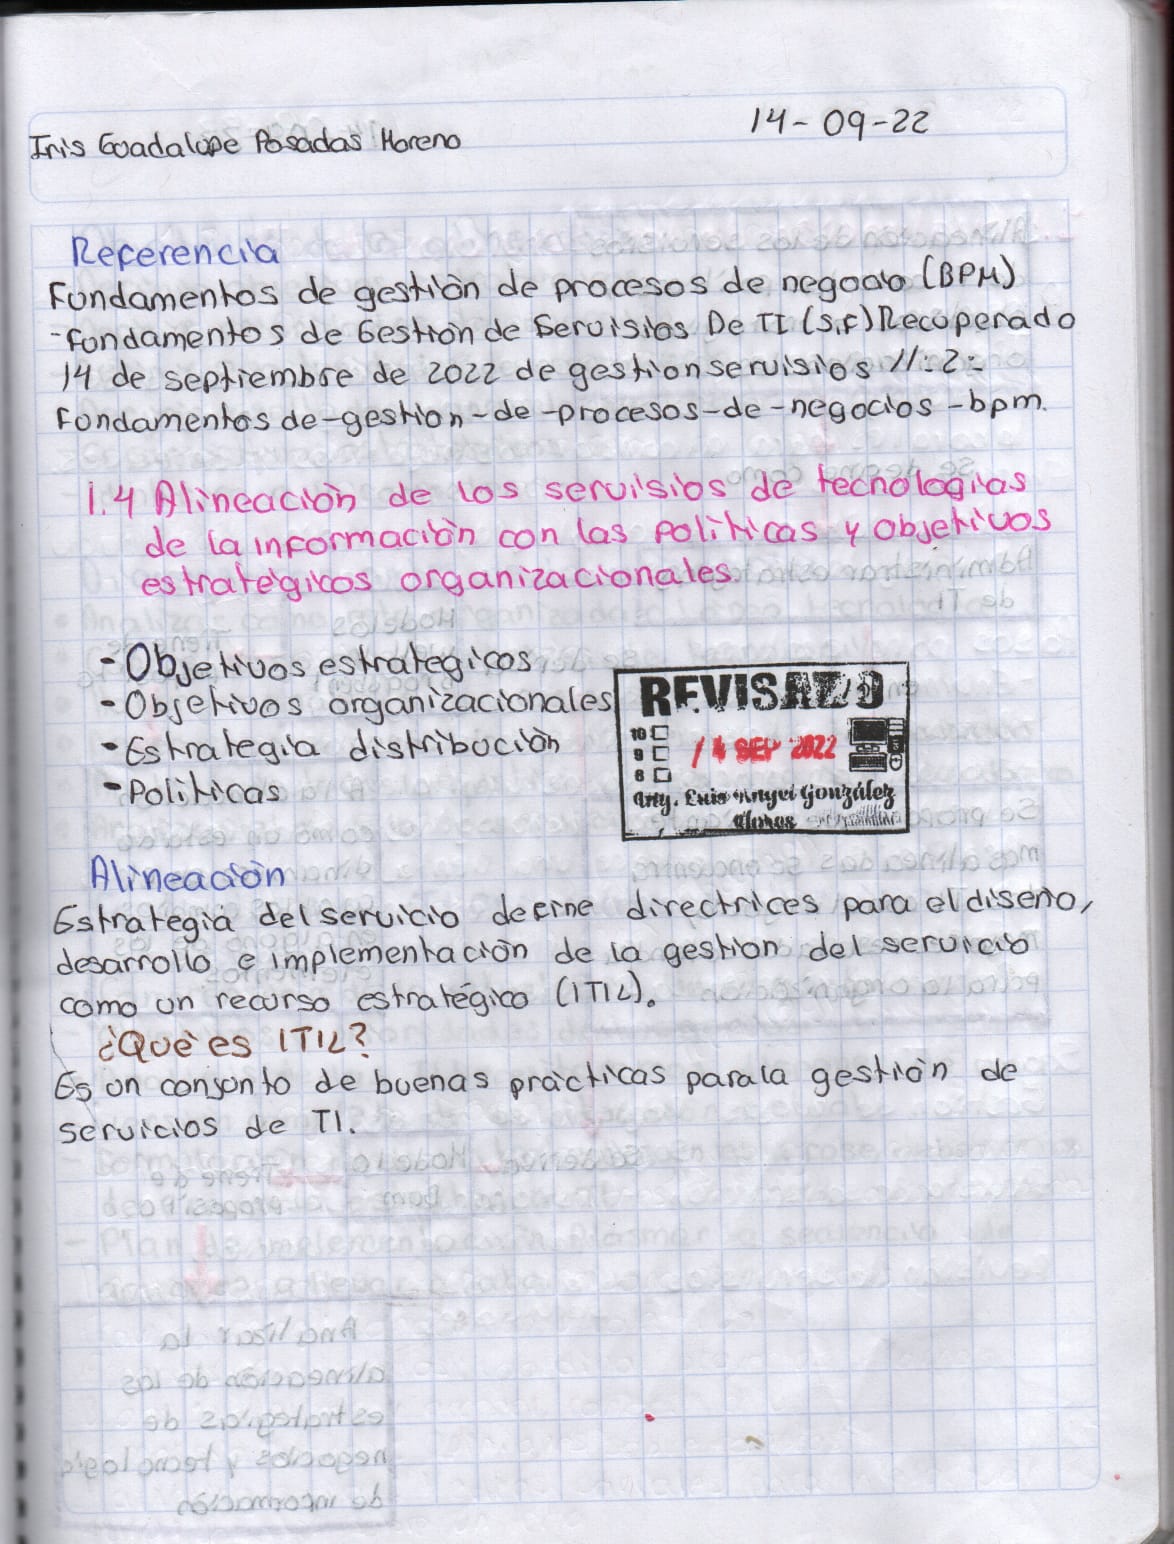 Iris Guadalupe Posadas Moreno
14-09-22
Referencia
Fundamentos de gestión de procesos de negocio (BPM)
-fundamentos de Gestión de Servisios De TI (S,F) Recuperado
14 de septiembre de 2022 de gestionservisios //:2:
Fundamentos de-gestion-de-procesos-de-negocios-bpm.
1.4 Alineación de los servisios de tecnologias
de la información con las políticas y objetivos
estratégicos organizacionales
- Objetivos estrategicos
- Objetivos organizacionales
- Estrategia distribución
- Políticas
REVISADO
10
9
8
14 SEP 2022
González
Alineación
Estrategia del servicio define directrices para el diseño,
desarrollo e implementación de la gestion del servicio
como un recurso estratégico (ITIL).
¿Qué es ITIL?
Es un conjunto de buenas prácticas para la gestión de
servicios de TI.